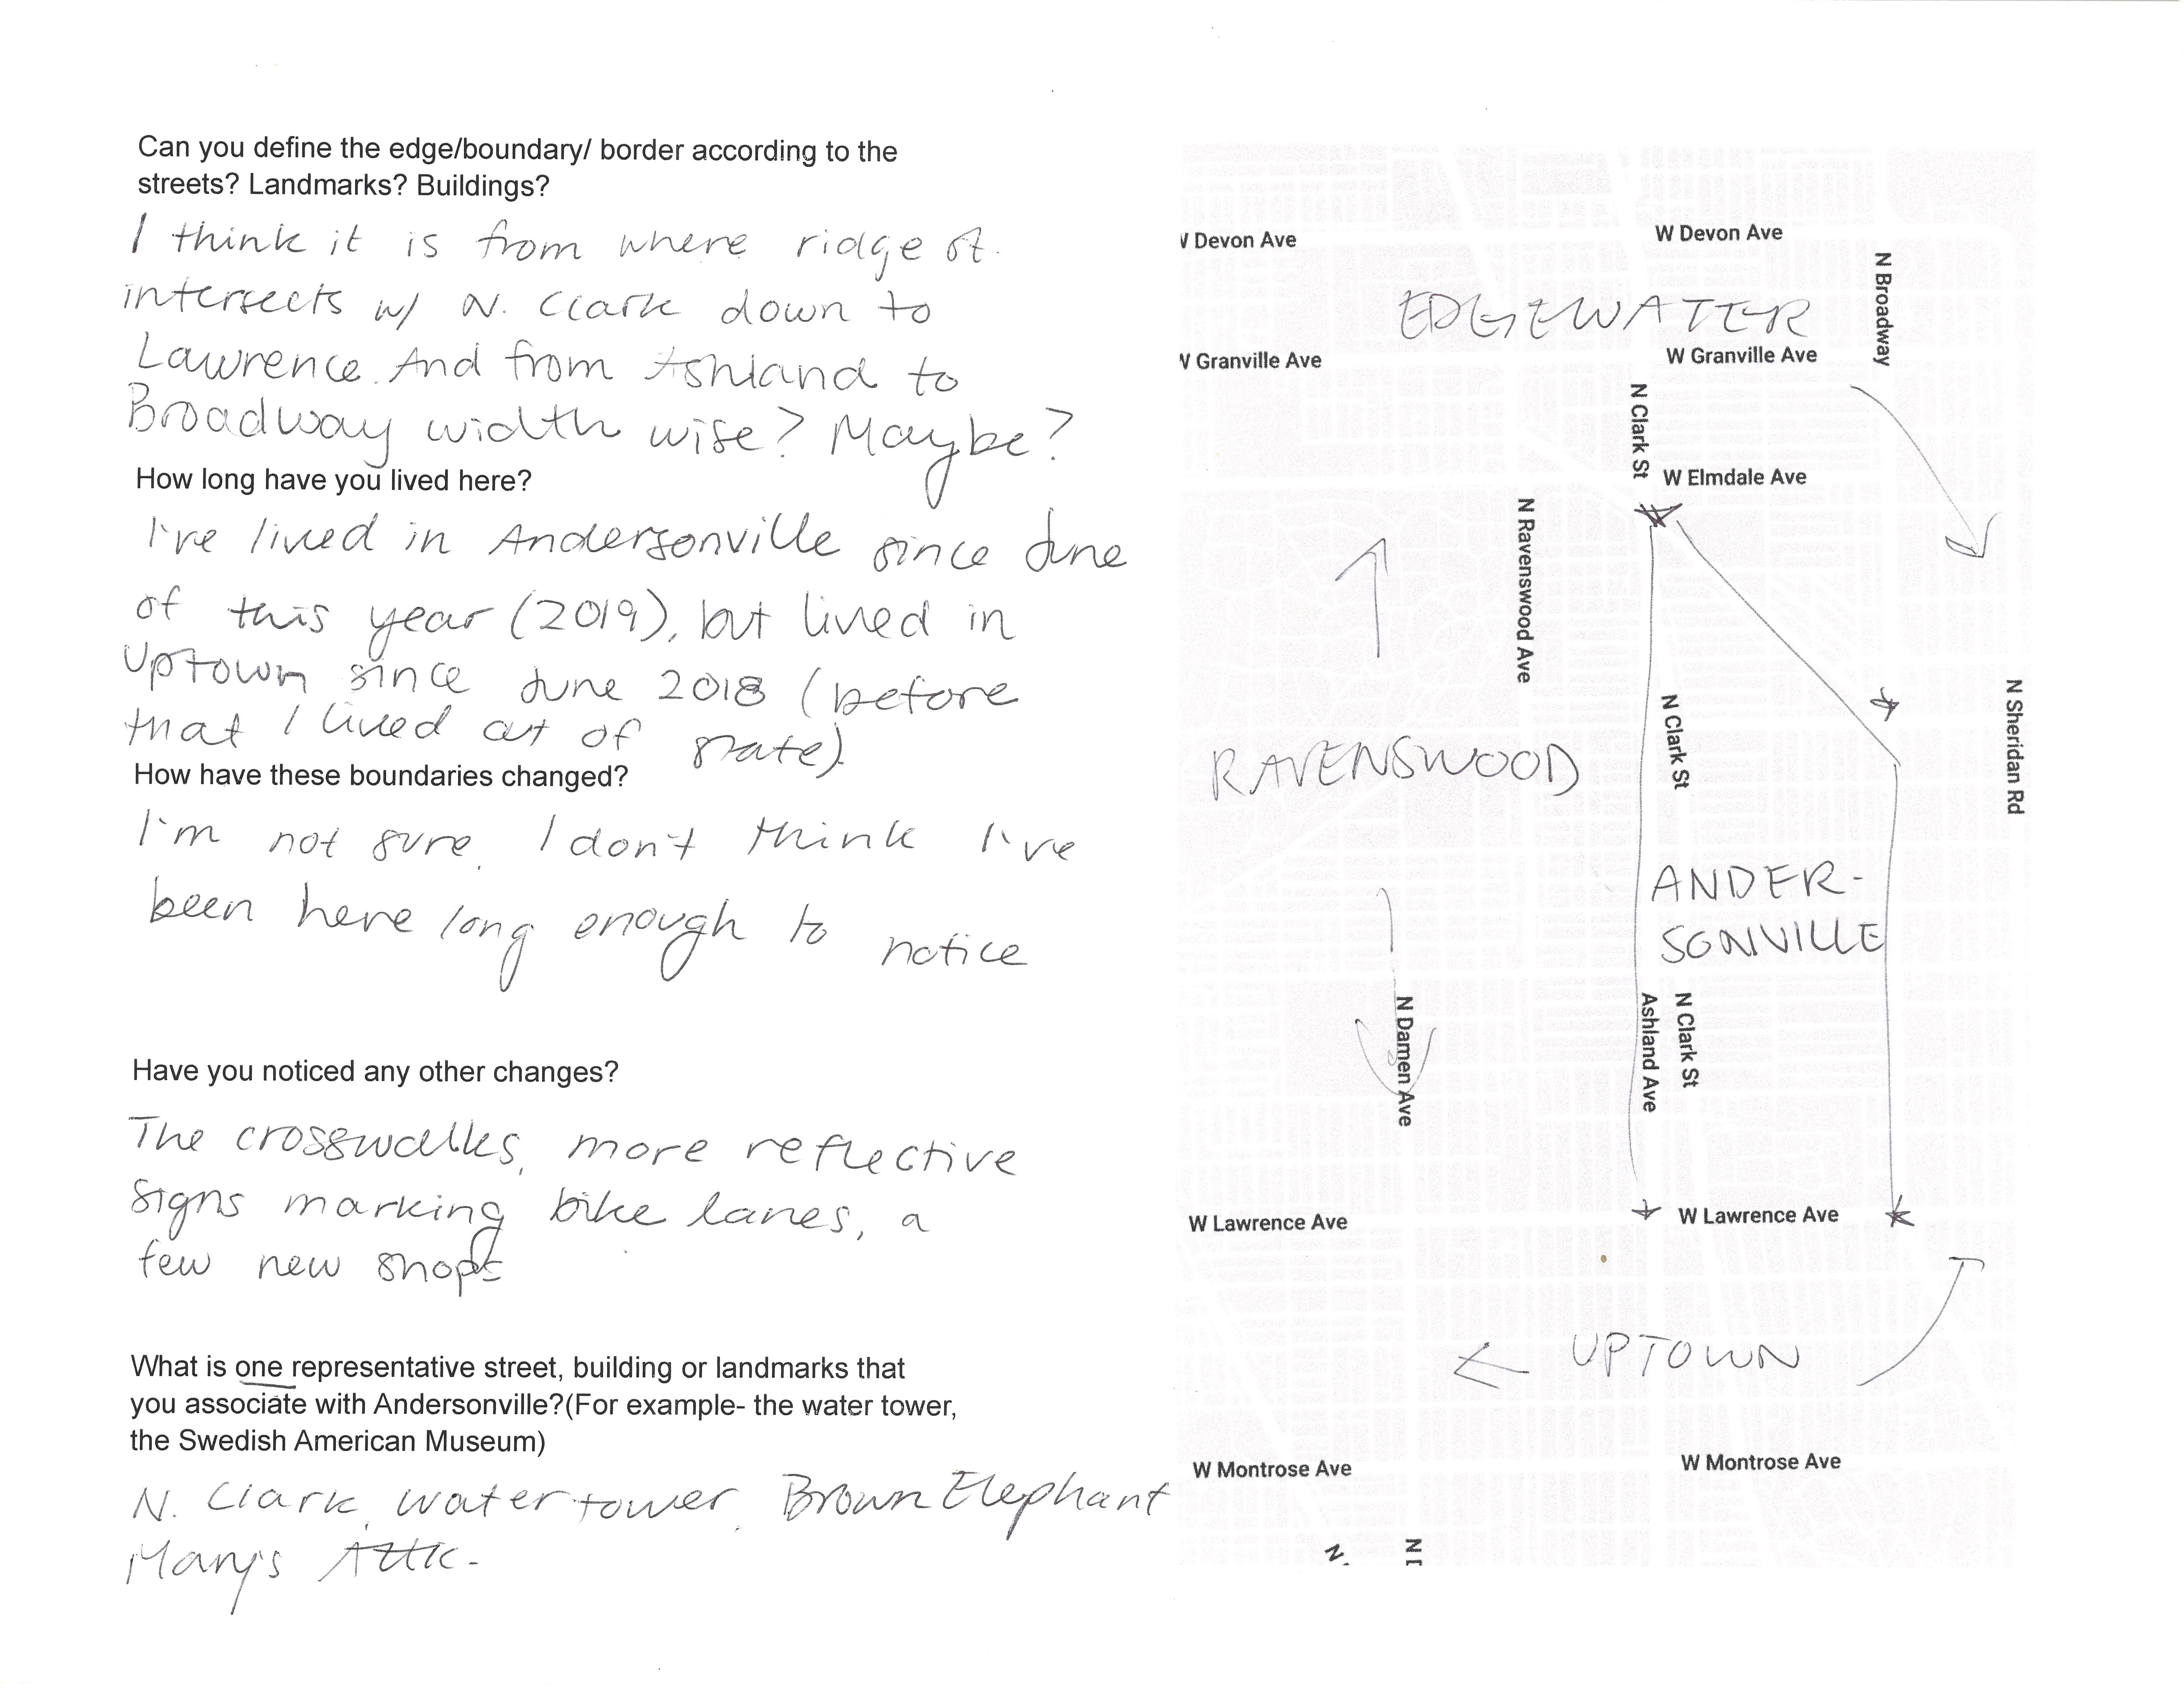 Can you define the edge/boundary/ border according to the
streets? Landmarks? Buildings?
I think it is from where ridge st.
intersects w/ N. Clark down to
Lawrence. And from Ashland to
Broadway width wise? Maybe?
How long have you lived here?
I've lived in Andersonville since June
of this year (2019), but lived in
Uptown since June 2018 (before
that I lived out of state).
How have these boundaries changed?
I'm not sure. I don't think I've
been here long enough to notice
Have you noticed any other changes?
The crosswalks, more reflective
signs marking bike lanes, a
few new shops
What is one representative street, building or landmarks that
you associate with Andersonville?(For example- the water tower,
the Swedish American Museum)
N. Clark, water tower, Brown Elephant
Mary's Attic.
W Devon Ave
W Devon Ave
N Broadway
EDGEWATER
W Granville Ave
W Granville Ave
N Clark St
W Elmdale Ave
N Ravenswood Ave
N Sheridan Rd
N Clark St
RAVENSWOOD
ANDER-
SONVILLE
N Damen Ave
Ashland Ave
N Clark St
W Lawrence Ave
W Lawrence Ave
UPTOWN
W Montrose Ave
W Montrose Ave
N